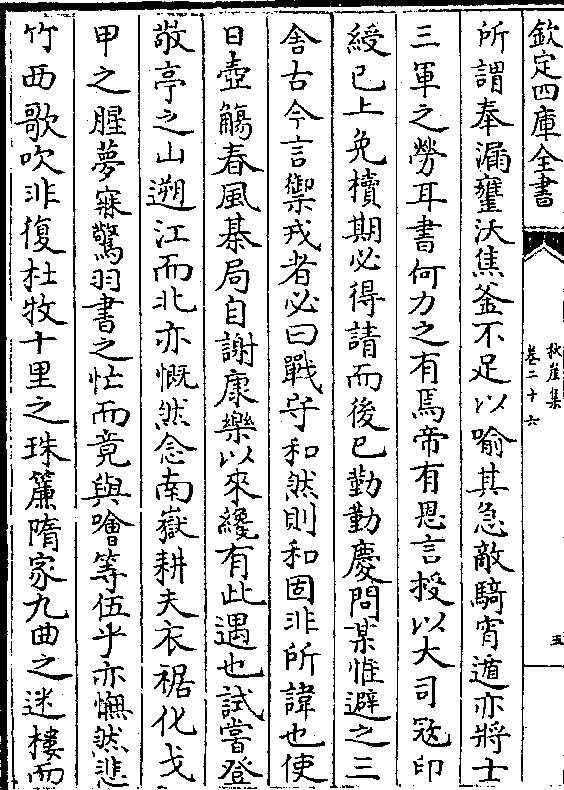 欽定四庫全書
秋崖集
卷二十六
五
所謂奉漏罋沃焦釜不足以喻其急敵騎宵遁亦將士
三軍之勞耳書何力之有焉帝有恩言授以大司寇印
綬已上免牘期必得請而後已勤勤慶問某惟避之三
舍古今言禦戎者必曰戰守和然則和固非所諱也使
日壺觴春風棊局自謝康樂以來纔有此遇也試嘗登
敬亭之山遡江而北亦慨然念南嶽耕夫衣裾化戈
甲之腥夢寐驚羽書之忙而竟與噲等伍乎亦憮然悲
竹西歌吹非復杜牧十里之珠簾隋家九曲之迷樓而